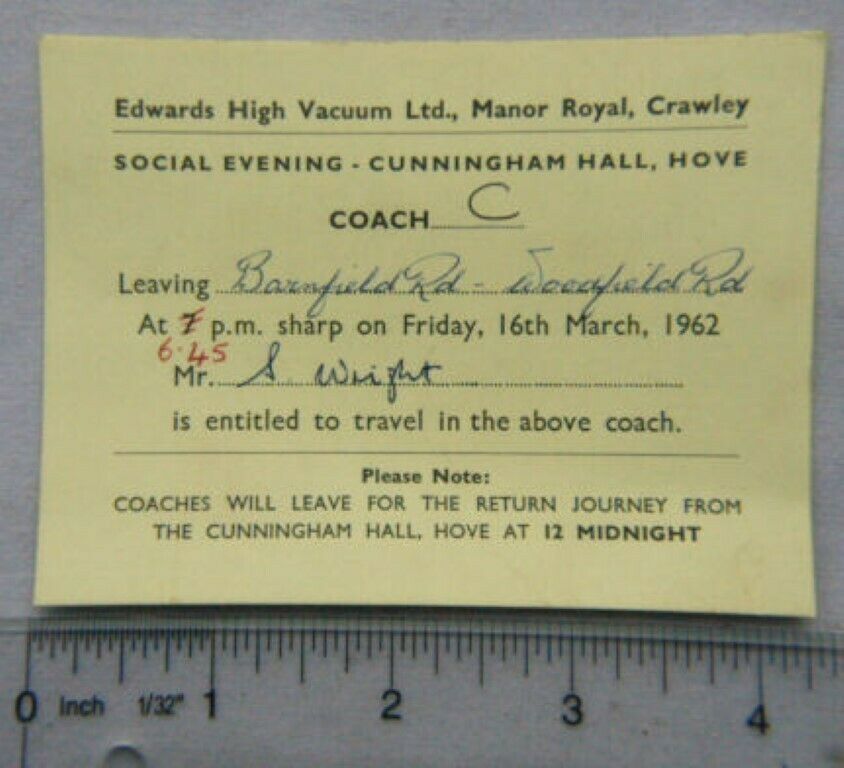 Edwards High Vacuum Ltd., Manor Royal, Crawley
SOCIAL EVENING - CUNNINGHAM HALL, HOVE
COACH C
Leaving Barnfield Rd - Woodfield Rd
At 7 p.m. sharp on Friday, 16th March, 1962
6.45
Mr. S. Wright
is entitled to travel in the above coach.
Please Note:
COACHES WILL LEAVE FOR THE RETURN JOURNEY FROM
THE CUNNINGHAM HALL, HOVE AT 12 MIDNIGHT
0 Inch 1/32" 1 2 3 4